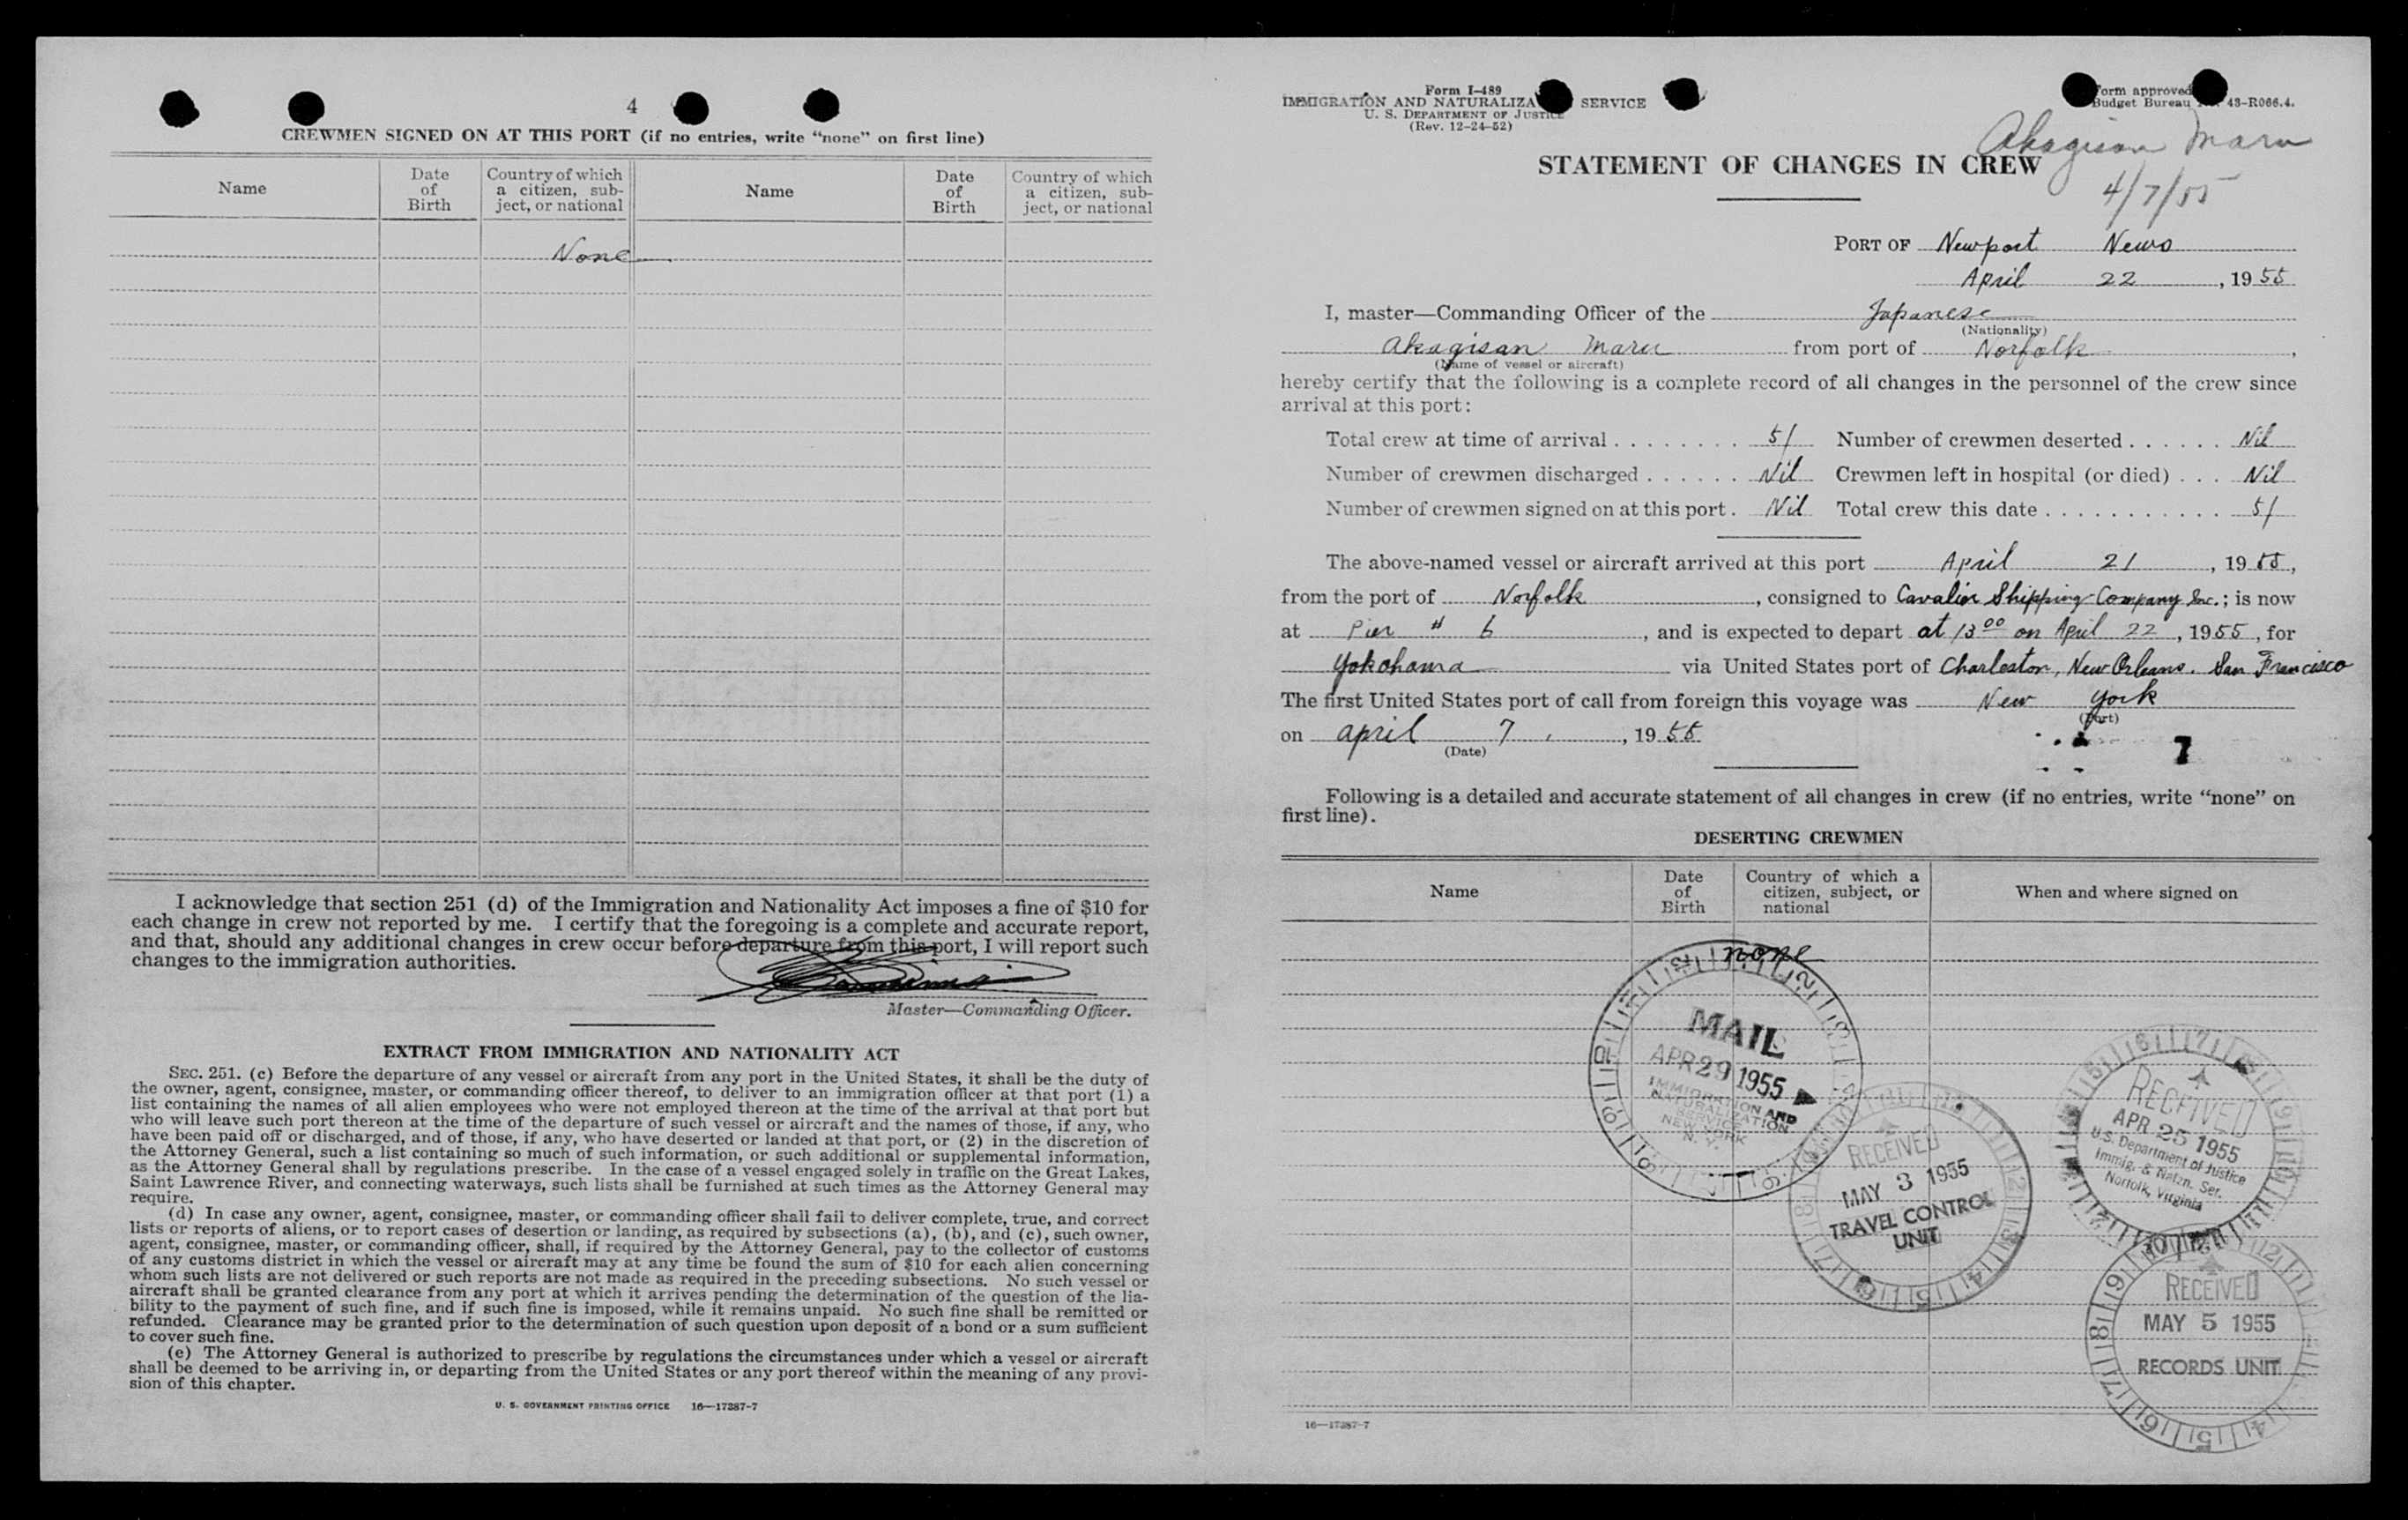 4
CREWMEN SIGNED ON AT THIS PORT (if no entries, write “none” on first line)
Name
Date of Birth
Country of which a citizen, sub-
ject, or national
Name
Date of Birth
Country of which a citizen, sub-
ject, or national
None
I acknowledge that section 251 (d) of the Immigration and Nationality Act imposes a fine of $10 for
each change in crew not reported by me. I certify that the foregoing is a complete and accurate report,
and that, should any additional changes in crew occur before departure from this port, I will report such
changes to the immigration authorities.
Master—Commanding Officer.
EXTRACT FROM IMMIGRATION AND NATIONALITY ACT
SEC. 251. (c) Before the departure of any vessel or aircraft from any port in the United States, it shall be the duty of
the owner, agent, consignee, master, or commanding officer thereof, to deliver to an immigration officer at that port (1) a
list containing the names of all alien employees who were not employed thereon at the time of the arrival at that port but
who will leave such port thereon at the time of the departure of such vessel or aircraft and the names of those, if any, who
have been paid off or discharged, and of those, if any, who have deserted or landed at that port, or (2) in the discretion of
the Attorney General, such a list containing so much of such information, or such additional or supplemental information,
as the Attorney General shall by regulations prescribe. In the case of a vessel engaged solely in traffic on the Great Lakes,
Saint Lawrence River, and connecting waterways, such lists shall be furnished at such times as the Attorney General may
require.
(d) In case any owner, agent, consignee, master, or commanding officer shall fail to deliver complete, true, and correct
lists or reports of aliens, or to report cases of desertion or landing, as required by subsections (a), (b), and (c), such owner,
agent, consignee, master, or commanding officer, shall, if required by the Attorney General, pay to the collector of customs
of any customs district in which the vessel or aircraft may at any time be found the sum of $10 for each alien concerning
whom such lists are not delivered or such reports are not made as required in the preceding subsections. No such vessel or
aircraft shall be granted clearance from any port at which it arrives pending the determination of the question of the lia-
bility to the payment of such fine, and if such fine is imposed, while it remains unpaid. No such fine shall be remitted or
refunded. Clearance may be granted prior to the determination of such question upon deposit of a bond or a sum sufficient
to cover such fine.
(e) The Attorney General is authorized to prescribe by regulations the circumstances under which a vessel or aircraft
shall be deemed to be arriving in, or departing from the United States or any port thereof within the meaning of any provi-
sion of this chapter.
U. S. GOVERNMENT PRINTING OFFICE 16—17387-7
Form I-489
IMMIGRATION AND NATURALIZA SERVICE
U. S. DEPARTMENT OF JUSTICE
(Rev. 12-24-52)
Form approved
Budget Bureau 43-R066.4.
Akagisan Maru
4/7/55
STATEMENT OF CHANGES IN CREW
PORT OF Newport News
April 22, 1955
I, master—Commanding Officer of the Japanese
(Nationality)
Akagisan Maru from port of Norfolk,
(Name of vessel or aircraft)
hereby certify that the following is a complete record of all changes in the personnel of the crew since
arrival at this port:
Total crew at time of arrival . . . . . . . . 51 Number of crewmen deserted . . . . . . Nil
Number of crewmen discharged . . . . . . Nil Crewmen left in hospital (or died) . . . Nil
Number of crewmen signed on at this port . Nil Total crew this date . . . . . . . . . . . 51
The above-named vessel or aircraft arrived at this port April 21, 1955,
from the port of Norfolk, consigned to Cavalier Shipping Company Inc.; is now
at Pier # 6, and is expected to depart at 13 00 on April 22, 1955, for
Yokohama via United States port of Charleston, New Orleans. San Francisco
The first United States port of call from foreign this voyage was New York
(Port)
on April 7, 1955
(Date)
7
Following is a detailed and accurate statement of all changes in crew (if no entries, write “none” on
first line).
DESERTING CREWMEN
Name
Date of Birth
Country of which a citizen, subject, or national
When and where signed on
none
MAIL
APR 29 1955
IMMIGRATION AND
NATURALIZATION
SERVICE
NEW YORK
N. Y.
RECEIVED
MAY 3 1955
TRAVEL CONTROL
UNIT
RECEIVED
APR 25 1955
U.S. Department of Justice
Immig. & Natzn. Ser.
Norfolk, Virginia
RECEIVED
MAY 5 1955
RECORDS UNIT
16—17387-7